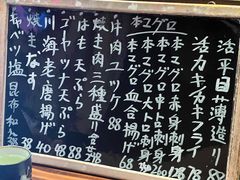 活平目薄造り 80
活カキフライ
本マグロ
本マグロ赤身刺身
本マグロ中トロ刺身
本マグロ大トロ刺身
本マグロ血合揚げ 68
牛肉ユッケ 88
焼き肉三種盛り合
はも天ぷら 78
ゴーヤツナ天ぷら 48
川海老唐揚げ 40
焼きなす 38
キャベツ塩昆布和